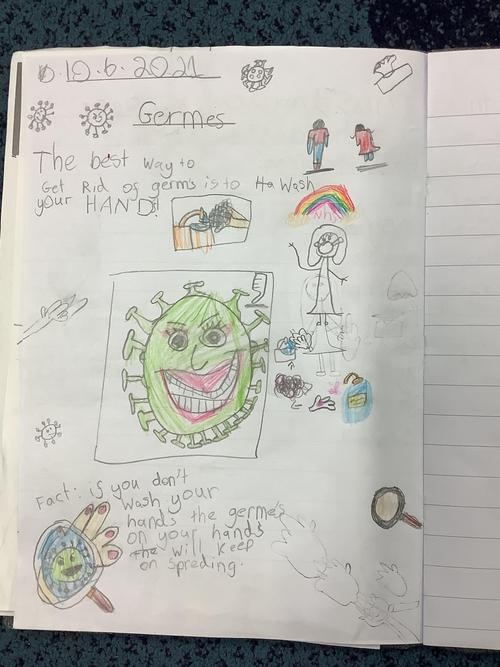 10.6.2021
Germes
The best way to
Get Rid of germs is to Ha Wash
your HAND!
Nhs
Fact: if you don't
wash your
hands the germe's
on your hands
the will keep
on spreding.